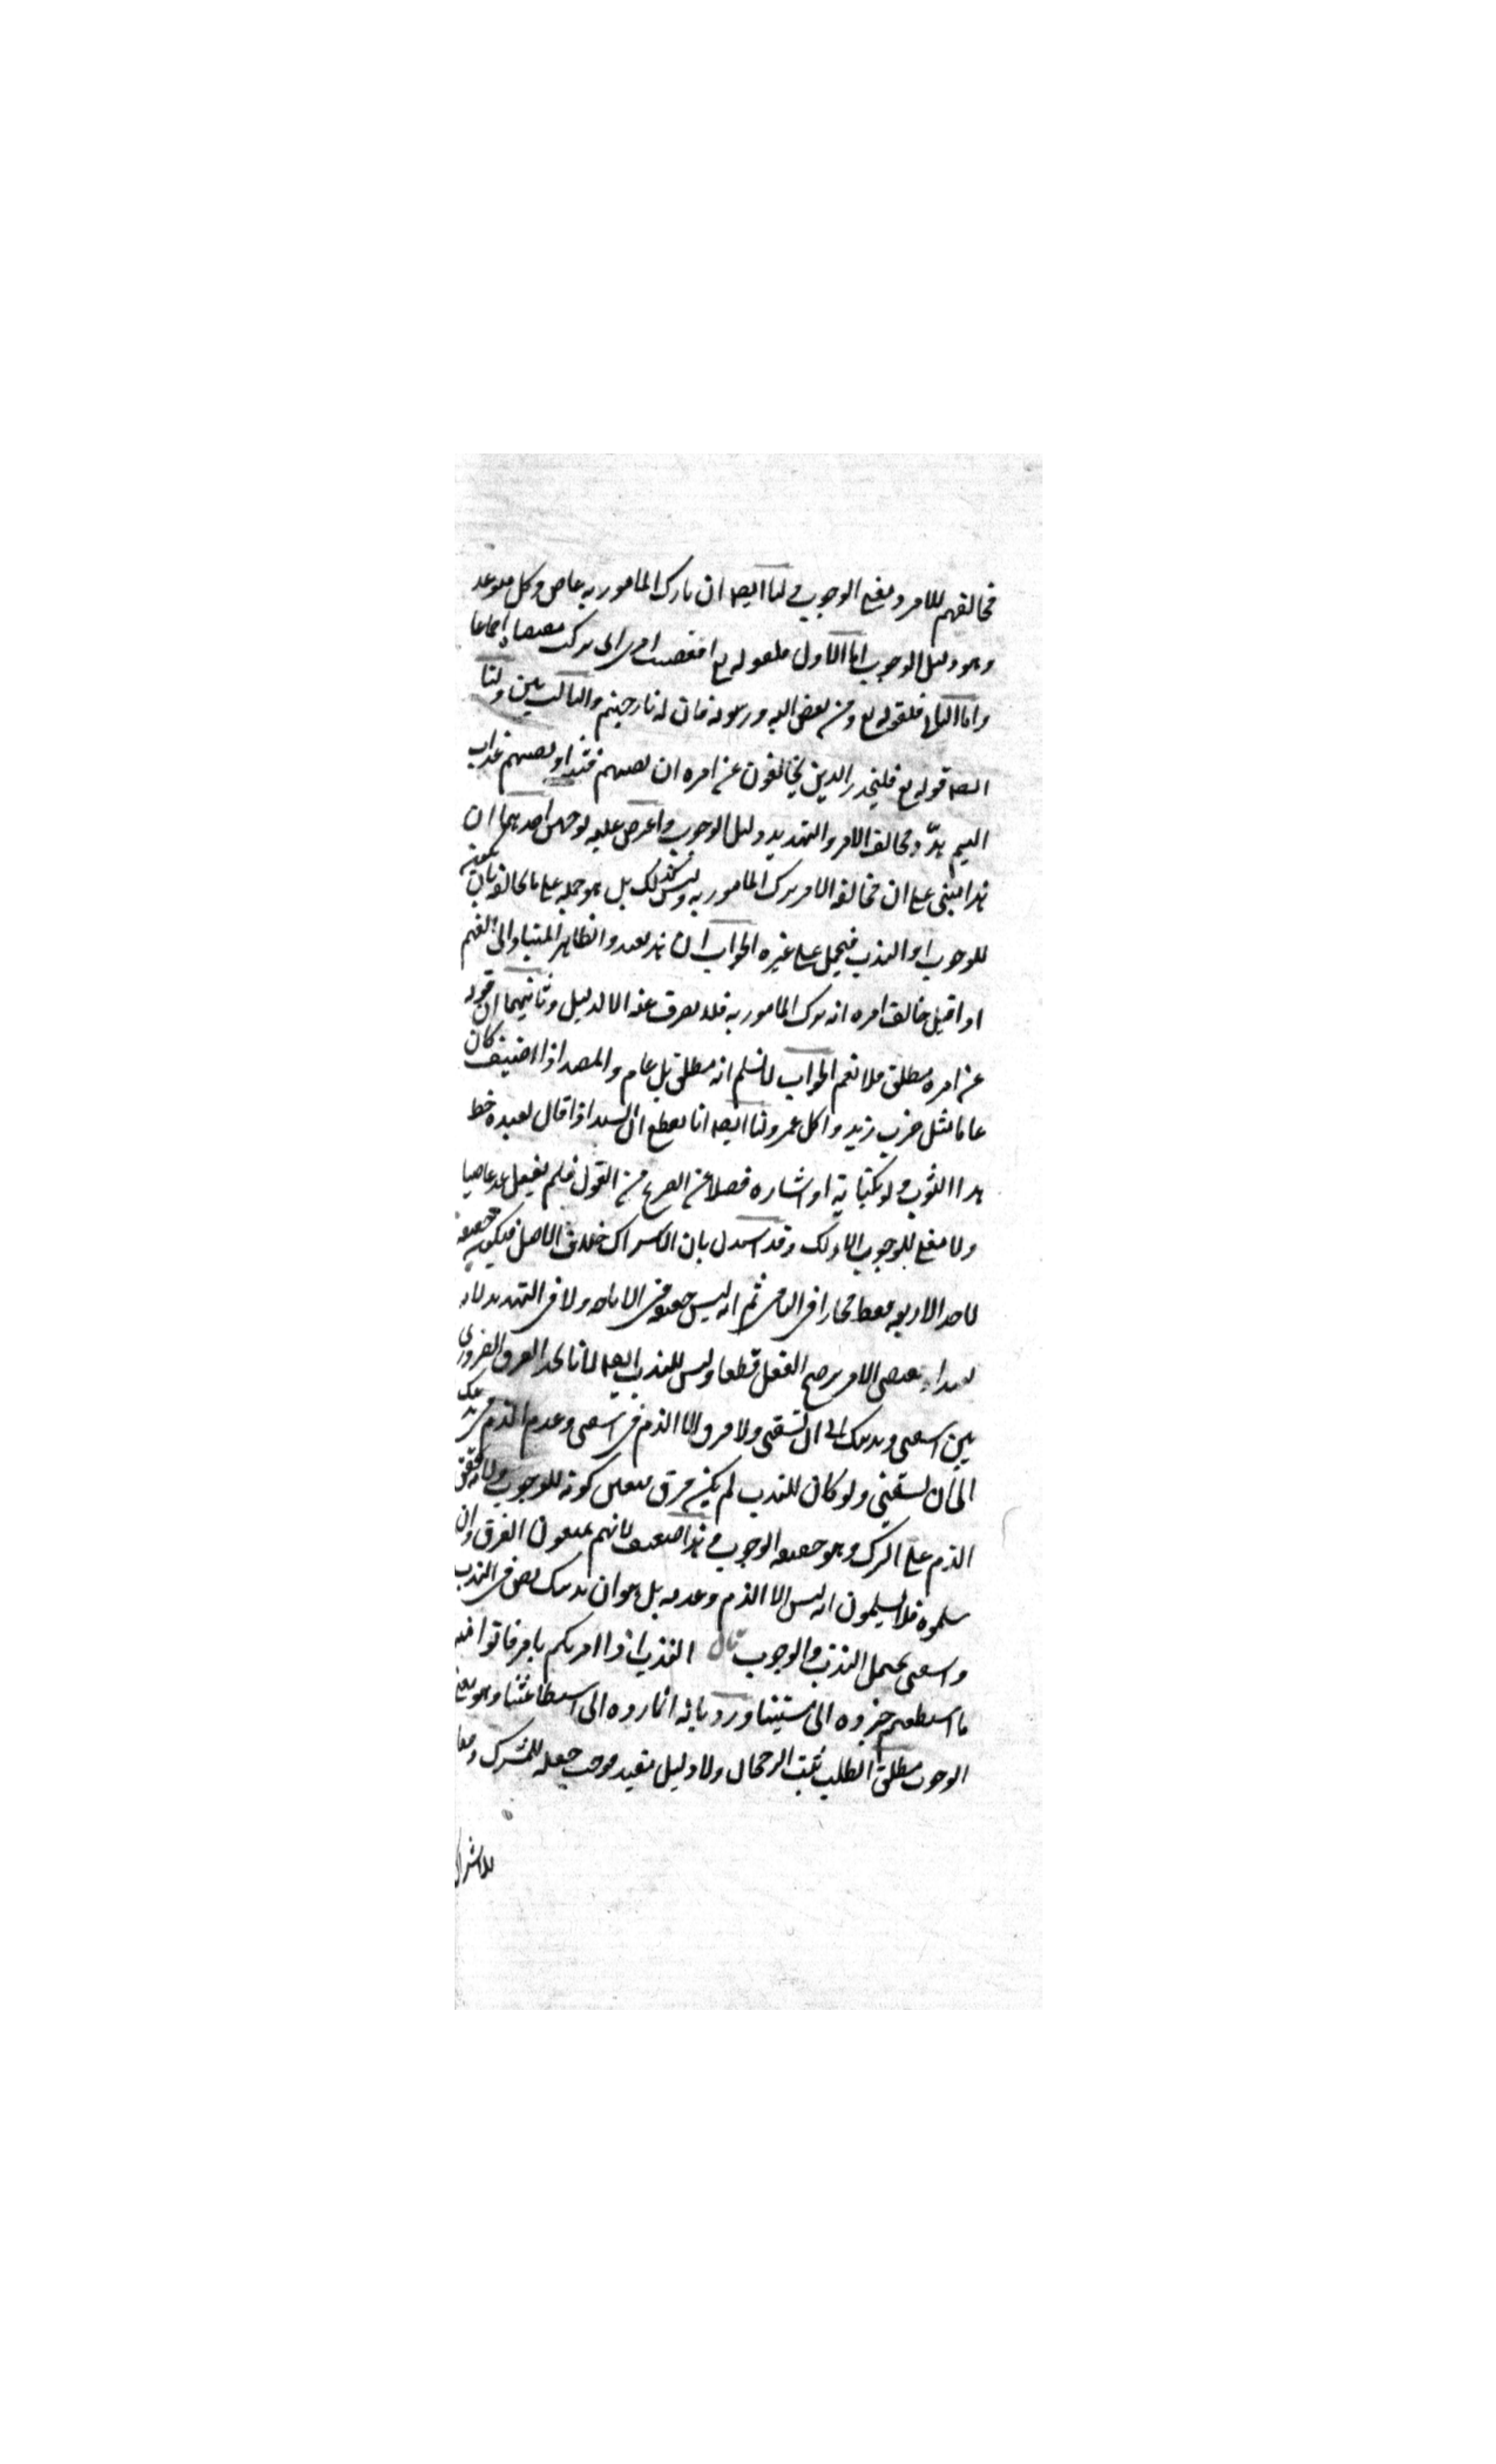 مخالفتهم للامر ومعنى الوجوب ولنا ايضا ان تارك المامور به عاص وكل متوعد
وهو دليل الوجوب اما الاول فلقوله تع افعصيت امرى اى تركت مقتضاه اجماعا
واما الثانى فلقوله تع ومن يعص الله ورسوله فان له نار جهنم والثالث بين ولنا
ايضا قوله تع فليحذر الذين يخالفون عن امره ان تصيبهم فتنة او يصيبهم عذاب
اليم هدد مخالف الامر والتهديد دليل الوجوب واعترض عليه بوجهين احدهما ان
هذا مبنى على ان مخالفة الامر ترك المامور به وليس كذلك بل هو حمله على ما يخالفه بان يكون
للوجوب او الندب فيحمل على غيره الجواب ان هذا بعيد والظاهر المتبادر الى الفهم
اذا قيل خالف امره انه ترك المامور به فلا يصرف عنه الا لدليل وثانيهما ان قوله
عن امره مطلق فلا يعم الجواب لا نسلم انه مطلق بل عام والمصدر اذا اضيف كان
عاما مثل ضرب زيد واكل عمرو ولنا ايضا انا نقطع ان السيد اذا قال لعبده خط
هذا الثوب ولو بكتابة او اشارة فضلا عن الصريح من القول فلم يفعل عد عاصيا
ولا معنى للوجوب الا ذلك وقد استدل بان الاشتراك خلاف الاصل فيكون حقيقة
لاحد الاربعة فقط مجازا فى الباقى ثم انه ليس حقيقة فى الاباحة ولا فى التهديد لانه
يقتضى الامر ترجيح الفعل قطعا وليس للندب ايضا لانا نجد الفرق الضرورى
بين اسقنى وندبتك الى ان تسقينى ولا فرق الا الذم فى اسقنى وعدم الذم فى ندبتك
الى ان تسقينى ولو كان للندب لم يكن فرق فتعين كونه للوجوب
الذم على الترك وهو حقيقة الوجوب وهذا ضعيف لانهم يمنعون الفرق وان
سلموه فلا يسلمون انه ليس الا الذم وعدمه بل هو ان ندبتك نص فى الندب
واسقنى يحتمل الندب والوجوب قال الندب اذا امرتكم بامر فاتوا منه
ما استطعتم فرده الى مشيتنا ورد بانه انما رده الى استطاعتنا وهو معنى
الوجوب مطلق الطلب ثبت الرجحان ولا دليل مقيد فوجب جعله للمشترك دفعا
للاشتراك